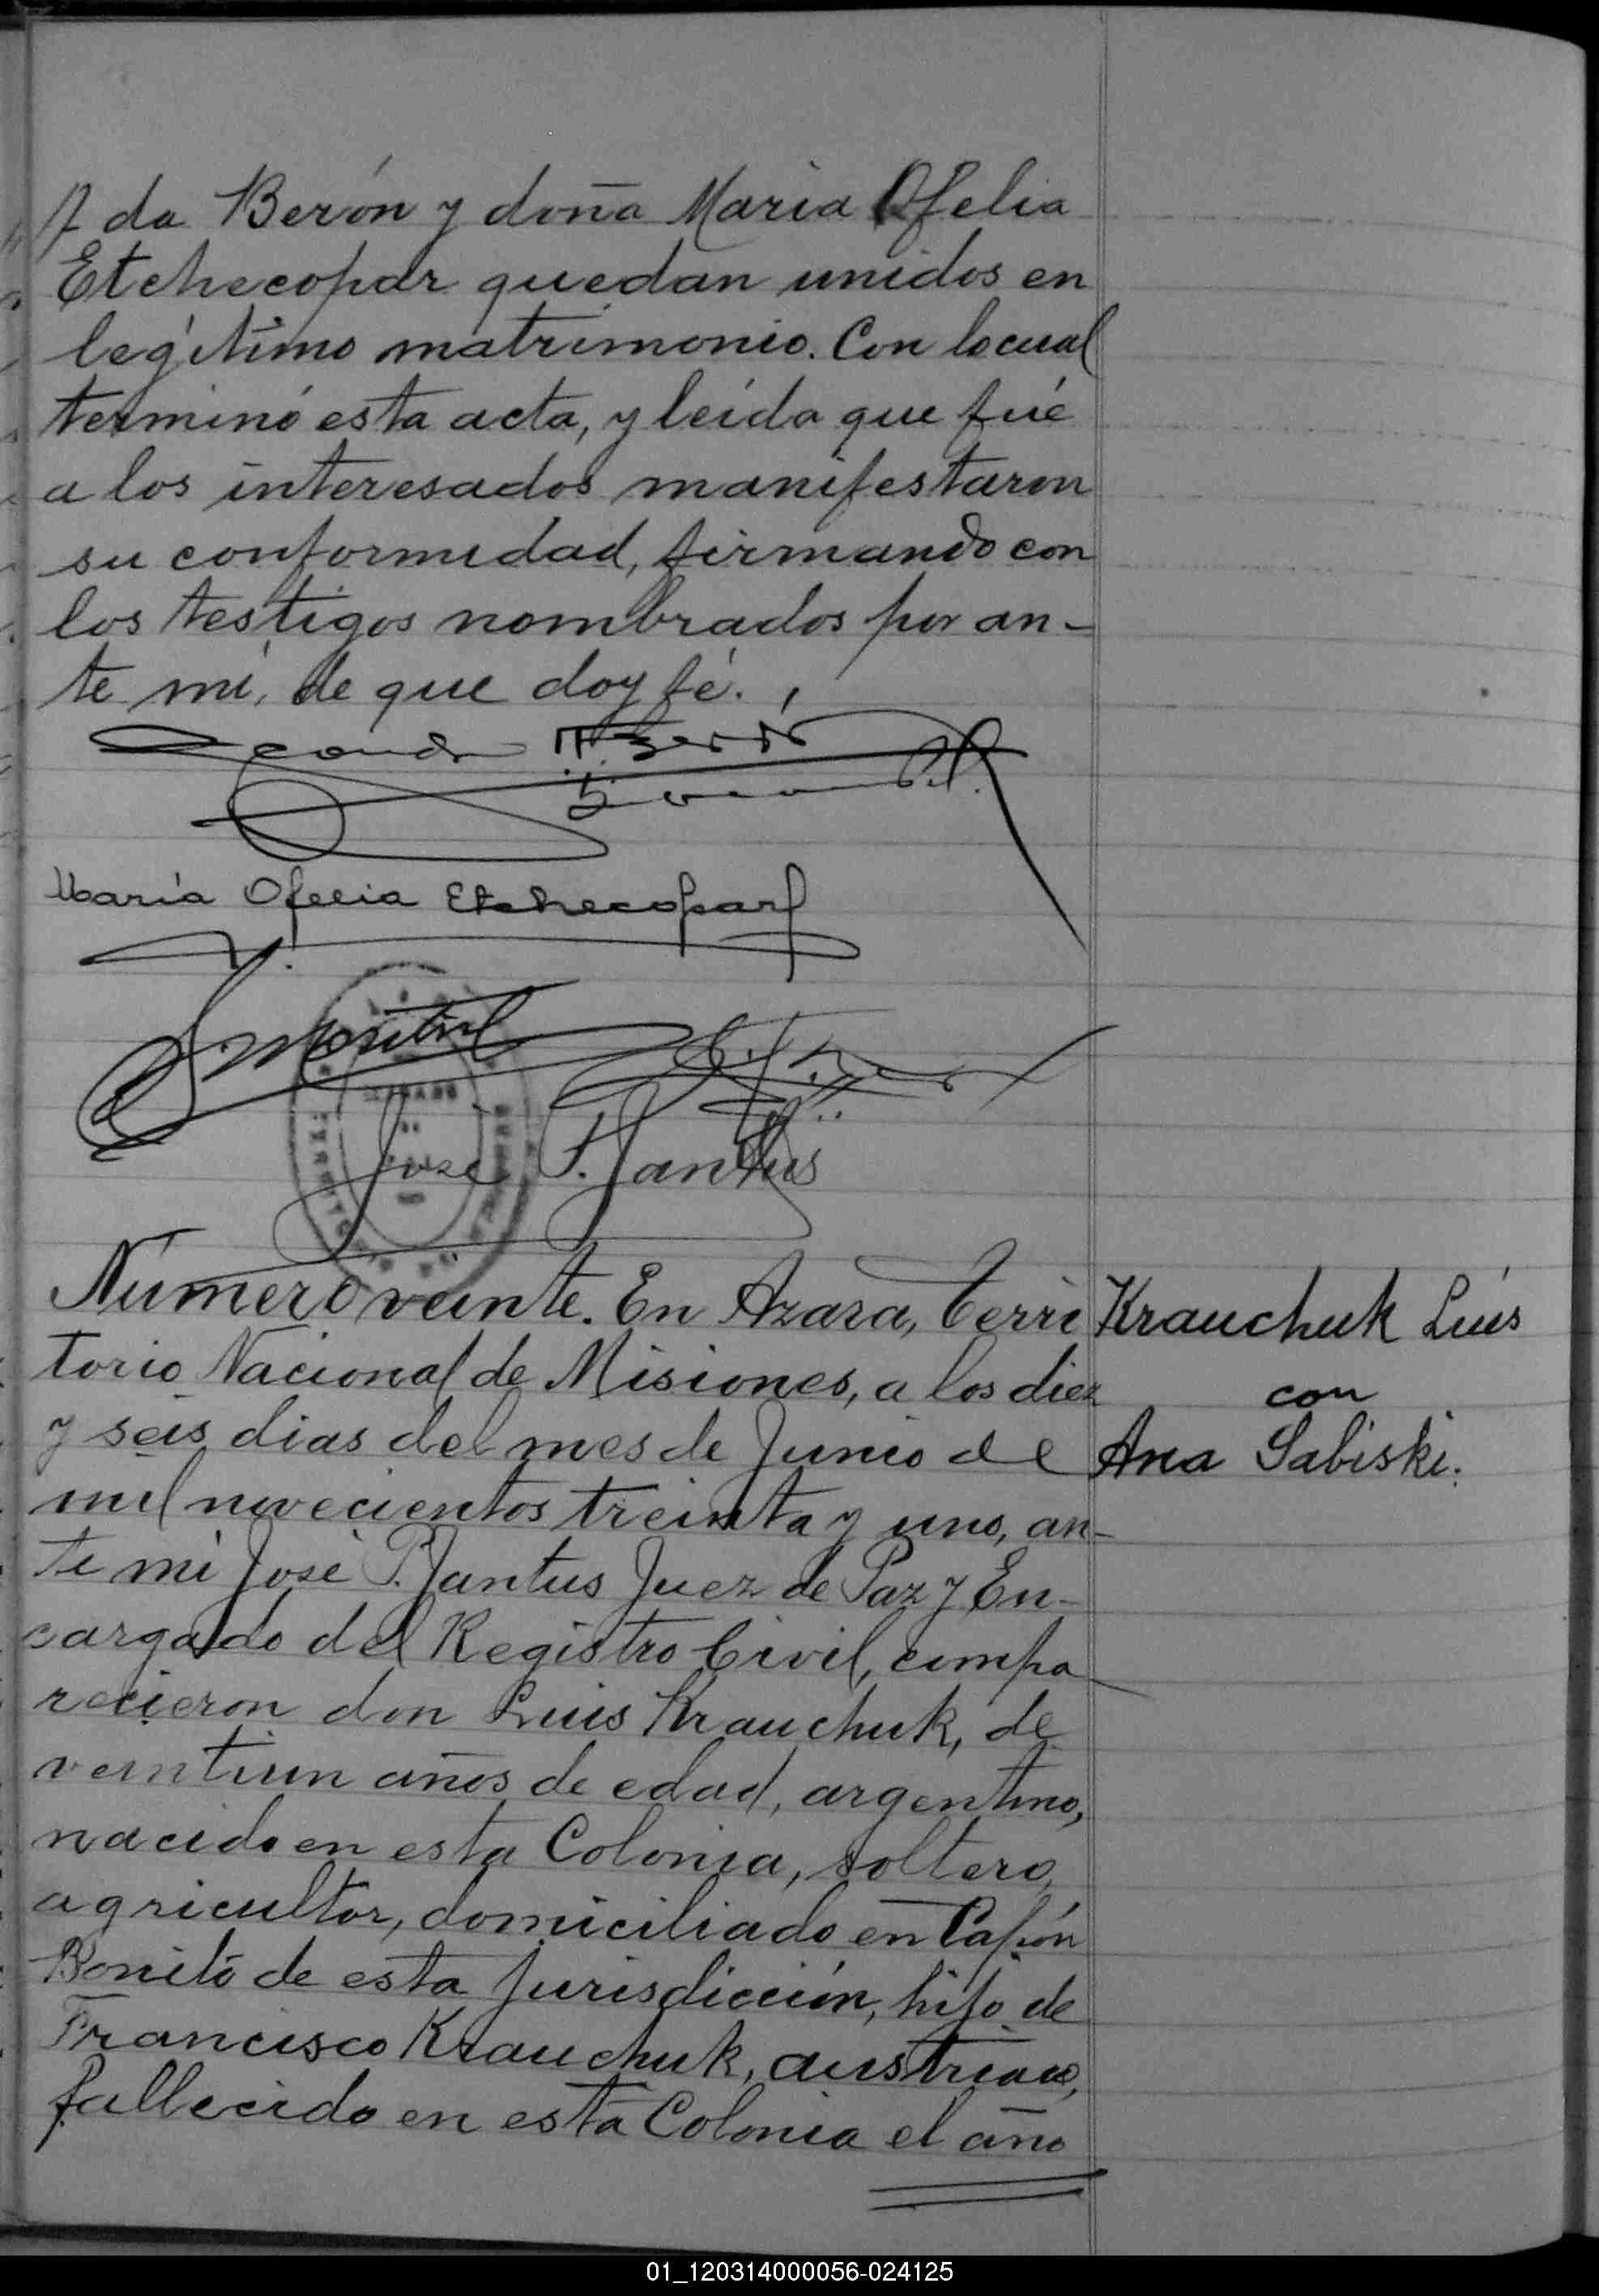 da Berón y doña Maria Ofelia
Etchecopar quedan unidos en
legítimo matrimonio. Con lo cual
terminó esta acta, y leída que fué
a los interesados manifestaron
su conformidad, firmando con
los testigos nombrados por an-
te mí, de que doy fé.
María Ofelia Etchecopar
José P. Jantus
Número veinte. En Azara, Terri
torio Nacional de Misiones, a los diez
y seis dias del mes de Junio de
mil novecientos treinta y uno, an-
te mi José P. Jantus Juez de Paz y En-
cargado del Registro Civil, compa
recieron don Luis Krauchuk, de
veintiun años de edad, argentino,
nacido en esta Colonia, soltero,
agricultor, domiciliado en Capón
Bonito de esta Jurisdicción, hijo de
Francisco Krauchuk, austriaco,
fallecido en esta Colonia el año
Krauchuk Luis
con
Ana Sabiski.
01_120314000056-024125